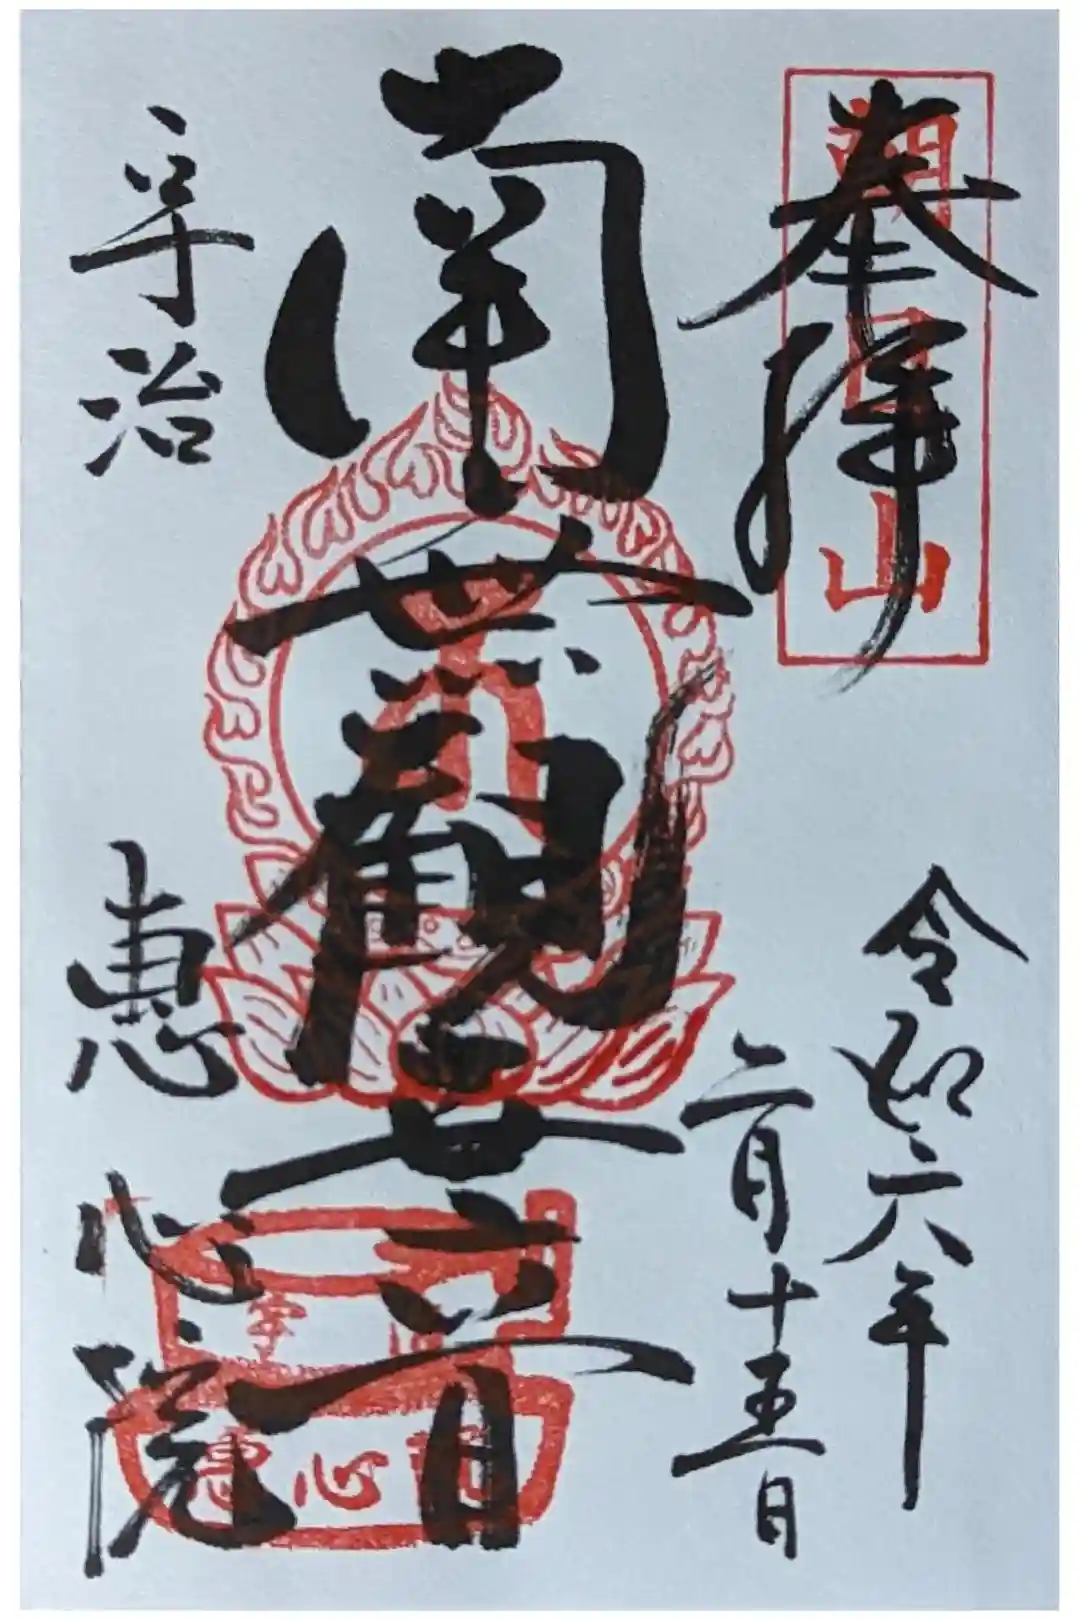 奉拝
朝日山
令和六年
二月十五日
南無觀世音
宇治
恵心院
宇治
恵心院